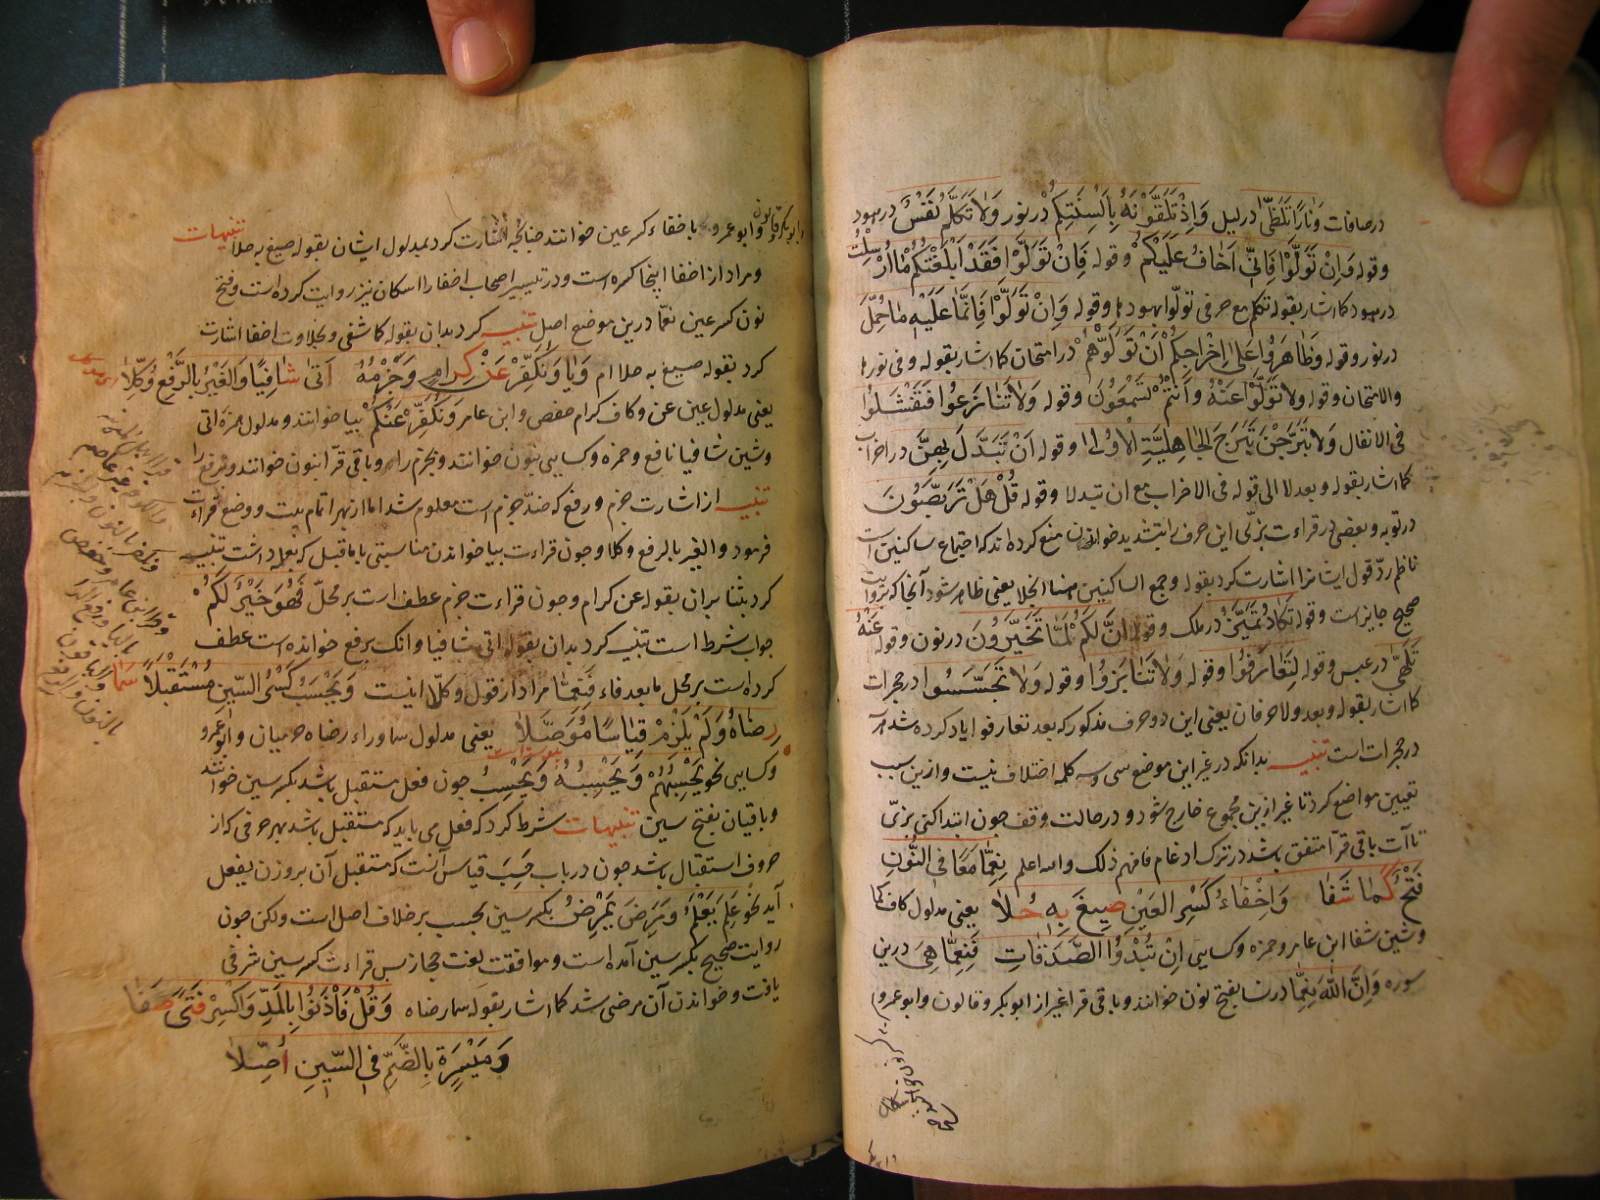 در صافات وَنَارًا تَلَظّٰى در ليل وَاِذْ تَلَقَّوْنَهُ بِاَلْسِنَتِكُمْ در نور وَلَا تَكَلَّمُ نَفْسٌ در هود
وقوله وَاِنْ تَوَلَّوْا فَاِنِّي اَخَافُ عَلَيْكُمْ وقوله فَاِنْ تَوَلَّوْا فَقَدْ اَبْلَغْتُكُمْ مَا اُرْسِلْتُ
در هود كما اشار بقوله تكلم مع حرفى تولوا بهودها وقوله وَاِنْ تَوَلَّوْا فَاِنَّمَا عَلَيْهِ مَا حُمِّلَ
در نور وقوله وَظَاهَرُوا عَلٰى اِخْرَاجِكُمْ اَنْ تَوَلَّوْهُمْ در امتحان كما اشار بقوله وفى نورها
والامتحان وقوله وَلَا تَوَلَّوْا عَنْهُ وَاَنْتُمْ تَسْمَعُونَ وقوله وَلَا تَنَازَعُوا فَتَفْشَلُوا
فى الانفال وَلَا تَبَرَّجْنَ تَبَرُّجَ الْجَاهِلِيَّةِ الْاُولٰى وقوله اَنْ تَبَدَّلَ بِهِنَّ در احزاب
كما اشار بقوله وبعد لا الى قوله فى الاحزاب مع ان تبدلا وقوله قُلْ هَلْ تَرَبَّصُونَ
در توبه وبعضى در قراءت بزى اين حرف را بتشديد خواندن منع كرده اند كه اجتماع ساكنين است
ناظم رد قول ايشانرا اشارت كرد بقوله وجمع الساكنين هنا انجلا يعنى ظاهر شود آنجا كه بروايت
صحيح جايز است وقوله تَكَادُ تَمَيَّزُ در ملك وقوله اِنَّ لَكُمْ لَمَا تَخَيَّرُونَ در نون وقوله عَنْهُ
تَلَهّٰى در عبس وقوله لِتَعَارَفُوا وقوله وَلَا تَنَابَزُوا وقوله وَلَا تَجَسَّسُوا در حجرات
كما اشار بقوله وبعد ولا حرفان يعنى اين دو حرف مذكور كه بعد تعارفوا ياد كرده شد هم
در حجرات است تنبيه بدانكه در غير اين موضع سى ويه كلمه اختلاف نيست وازين سبب
تعيين مواضع كرد تا غير ازين مجموع خارج شود ودر حالت وقف چون ابتدا كنى بزى
تاآت باقى قرا متفق باشد در ترك ادغام فافهم ذلك والله اعلم نِعِمَّا مَعًا فِى النُّونِ
فَتْحٌ كَمَا شَفَا وَاِخْفَاءُ كَسْرِ الْعَيْنِ صِيغَ بِهِ حُلَا يعنى مدلول كاف كما
وشين شفا ابن عامر وحمزه وكسايى اِنْ تُبْدُوا الصَّدَقَاتِ فَنِعِمَّا هِىَ درين
سوره وَاِنَّ اللّٰهَ نِعِمَّا در نسا بفتح نون خوانند وباقى قرا غير از ابوبكر وقالون وابوعمرو
وابوبكر وقالون وابوعمرو باخفاء كسر عين خوانند چنانكه اشارت كرد بمدلول ايشان بقوله صيغ به حلا تنبيهات
ومراد از اخفا اينجا كسره است ودر تيسير اصحاب اخفا را اسكان نيز روايت كرده است وفتح
نون كسر عين نعما درين موضع اصل تنبيه كرد بدان بقوله كما شفى وبحلاوت اخفا اشارت
كرد بقوله صيغ به حلا ام وَيَا وَنُكَفِّرْ عَنْ كِرَامٍ وَجَزْمُهُ اَتٰى شَافِيًا وَالْغَيْرُ بِالرَّفْعِ وُكِّلَا
يعنى مدلول عين عن وكاف كرام حفص وابن عامر وَنُكَفِّرْ عَنْكُمْ بيا خوانند ومدلول همزه اتى
وشين شافيا نافع وحمزه وكسايى بنون خوانند وبجزم را وباقى قرا بنون خوانند وبرفع را
تنبيه از اشارت جزم ورفع كه ضد جزم است معلوم شد اما از بهر اتمام بيت ووضع قراءت
فرمود والغير بالرفع وكلا وچون قراءت بيا خواندن مناسبتى با ما قبل كه يعلم داشت تنبيه
كرد بثنا بران بقوله عن كرام وچون قراءت جزم عطف است بر محل فَهُوَ خَيْرٌ لَكُمْ
جواب شرط است تنبيه كرد بدان بقوله اتى شافيا وانك برفع خوانده است عطف
كرده است بر محل ما بعد فاء فَنِعِمَّا مراد از قول وكلا اينست وَيَحْسَبُ كَسْرُ السِّينِ مُسْتَقْبَلًا سَمَا
رِضَاهُ وَلَمْ يَلْزَمْ قِيَاسًا مُؤَصَّلَا يعنى مدلول سما وراء رضاه حرميان وابوعمرو
وكسايى نحو يَحْسِبُهُمْ وَيَحْسِبُهُ وَيَحْسِبُ چون فعل مستقبل باشد بكسر سين خوانند
وباقيان بفتح سين تنبيهات شرط كرد كه فعل مى بايد كه مستقبل باشد بهر حرفى كه از
حروف استقبال باشد چون در باب حَسِبَ قياس آنست كه مستقبل آن بر وزن يفعل
آيد نحو عَلِمَ يَعْلَمُ وَمَرِضَ يَمْرَضُ بكسر سين يحسب بر خلاف اصل است ولكن چون
روايت صحيح بكسر سين آمده است وموافقت لغت حجاز پس قراءت كسر سين شرفى
يافت وخواندن آن مرضى شد كما اشار بقوله سما رضاه وَقُلْ فَأْذَنُوا بِالْمَدِّ وَاكْسِرْ فَتًى صَفَا
وَمَيْسَرَةٍ بِالضَّمِّ فِى السِّينِ اُصِّلَا